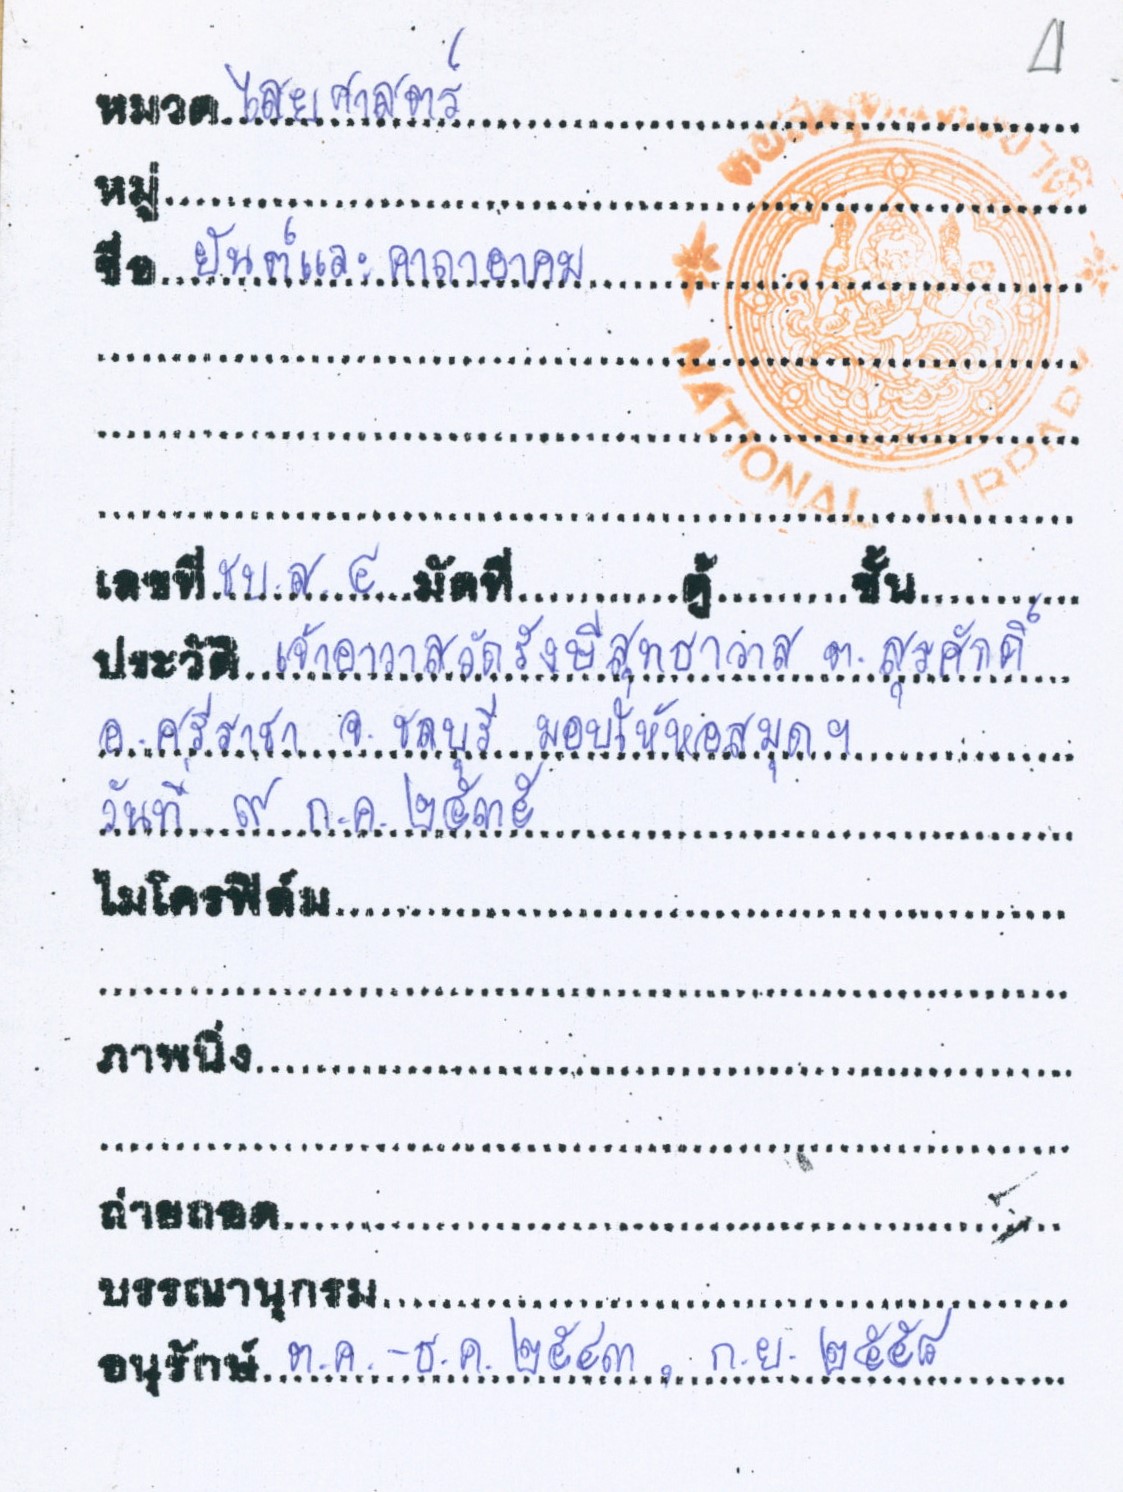 หมวด ไสยศาสตร์
หมู่
ชื่อ ยันต์และคาถาอาคม
หอสมุดแห่งชาติ
NATIONAL LIBRARY
เลขที่ ชบ.ส. ๔ มัดที่ ตู้ ชั้น
ประวัติ เจ้าอาวาสวัดรังษีสุทธาวาส ต. สุรศักดิ์
อ. ศรีราชา จ. ชลบุรี มอบให้หอสมุดฯ
วันที่ ๙ ก.ค. ๒๕๓๕
ไมโครฟิล์ม
ภาพนิ่ง
ถ่ายถอด
บรรณานุกรม
อนุรักษ์ ต.ค.-ธ.ค. ๒๕๔๓, ก.ย. ๒๕๕๘